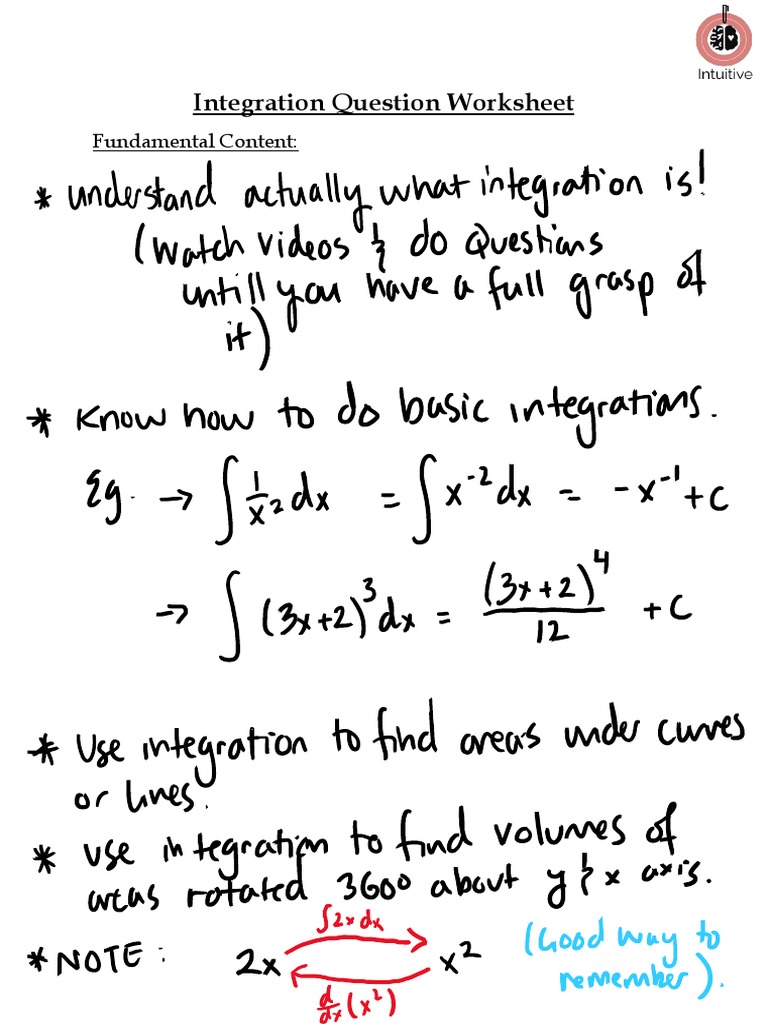 Intuitive
Integration Question Worksheet
Fundamental Content:
* understand actually what integration is!
(Watch videos & do Questions
untill you have a full grasp of
it)
* Know how to do basic integrations.
Eg. → ∫ 1/x² dx = ∫ x⁻² dx = -x⁻¹ + C
→ ∫ (3x+2)³ dx = (3x+2)⁴/12 + C
* Use integration to find areas under curves
or lines.
* Use integration to find volumes of
areas rotated 360° about y & x axis.
∫2x dx
* NOTE: 2x x² (Good way to
remember).
d/dx (x²)